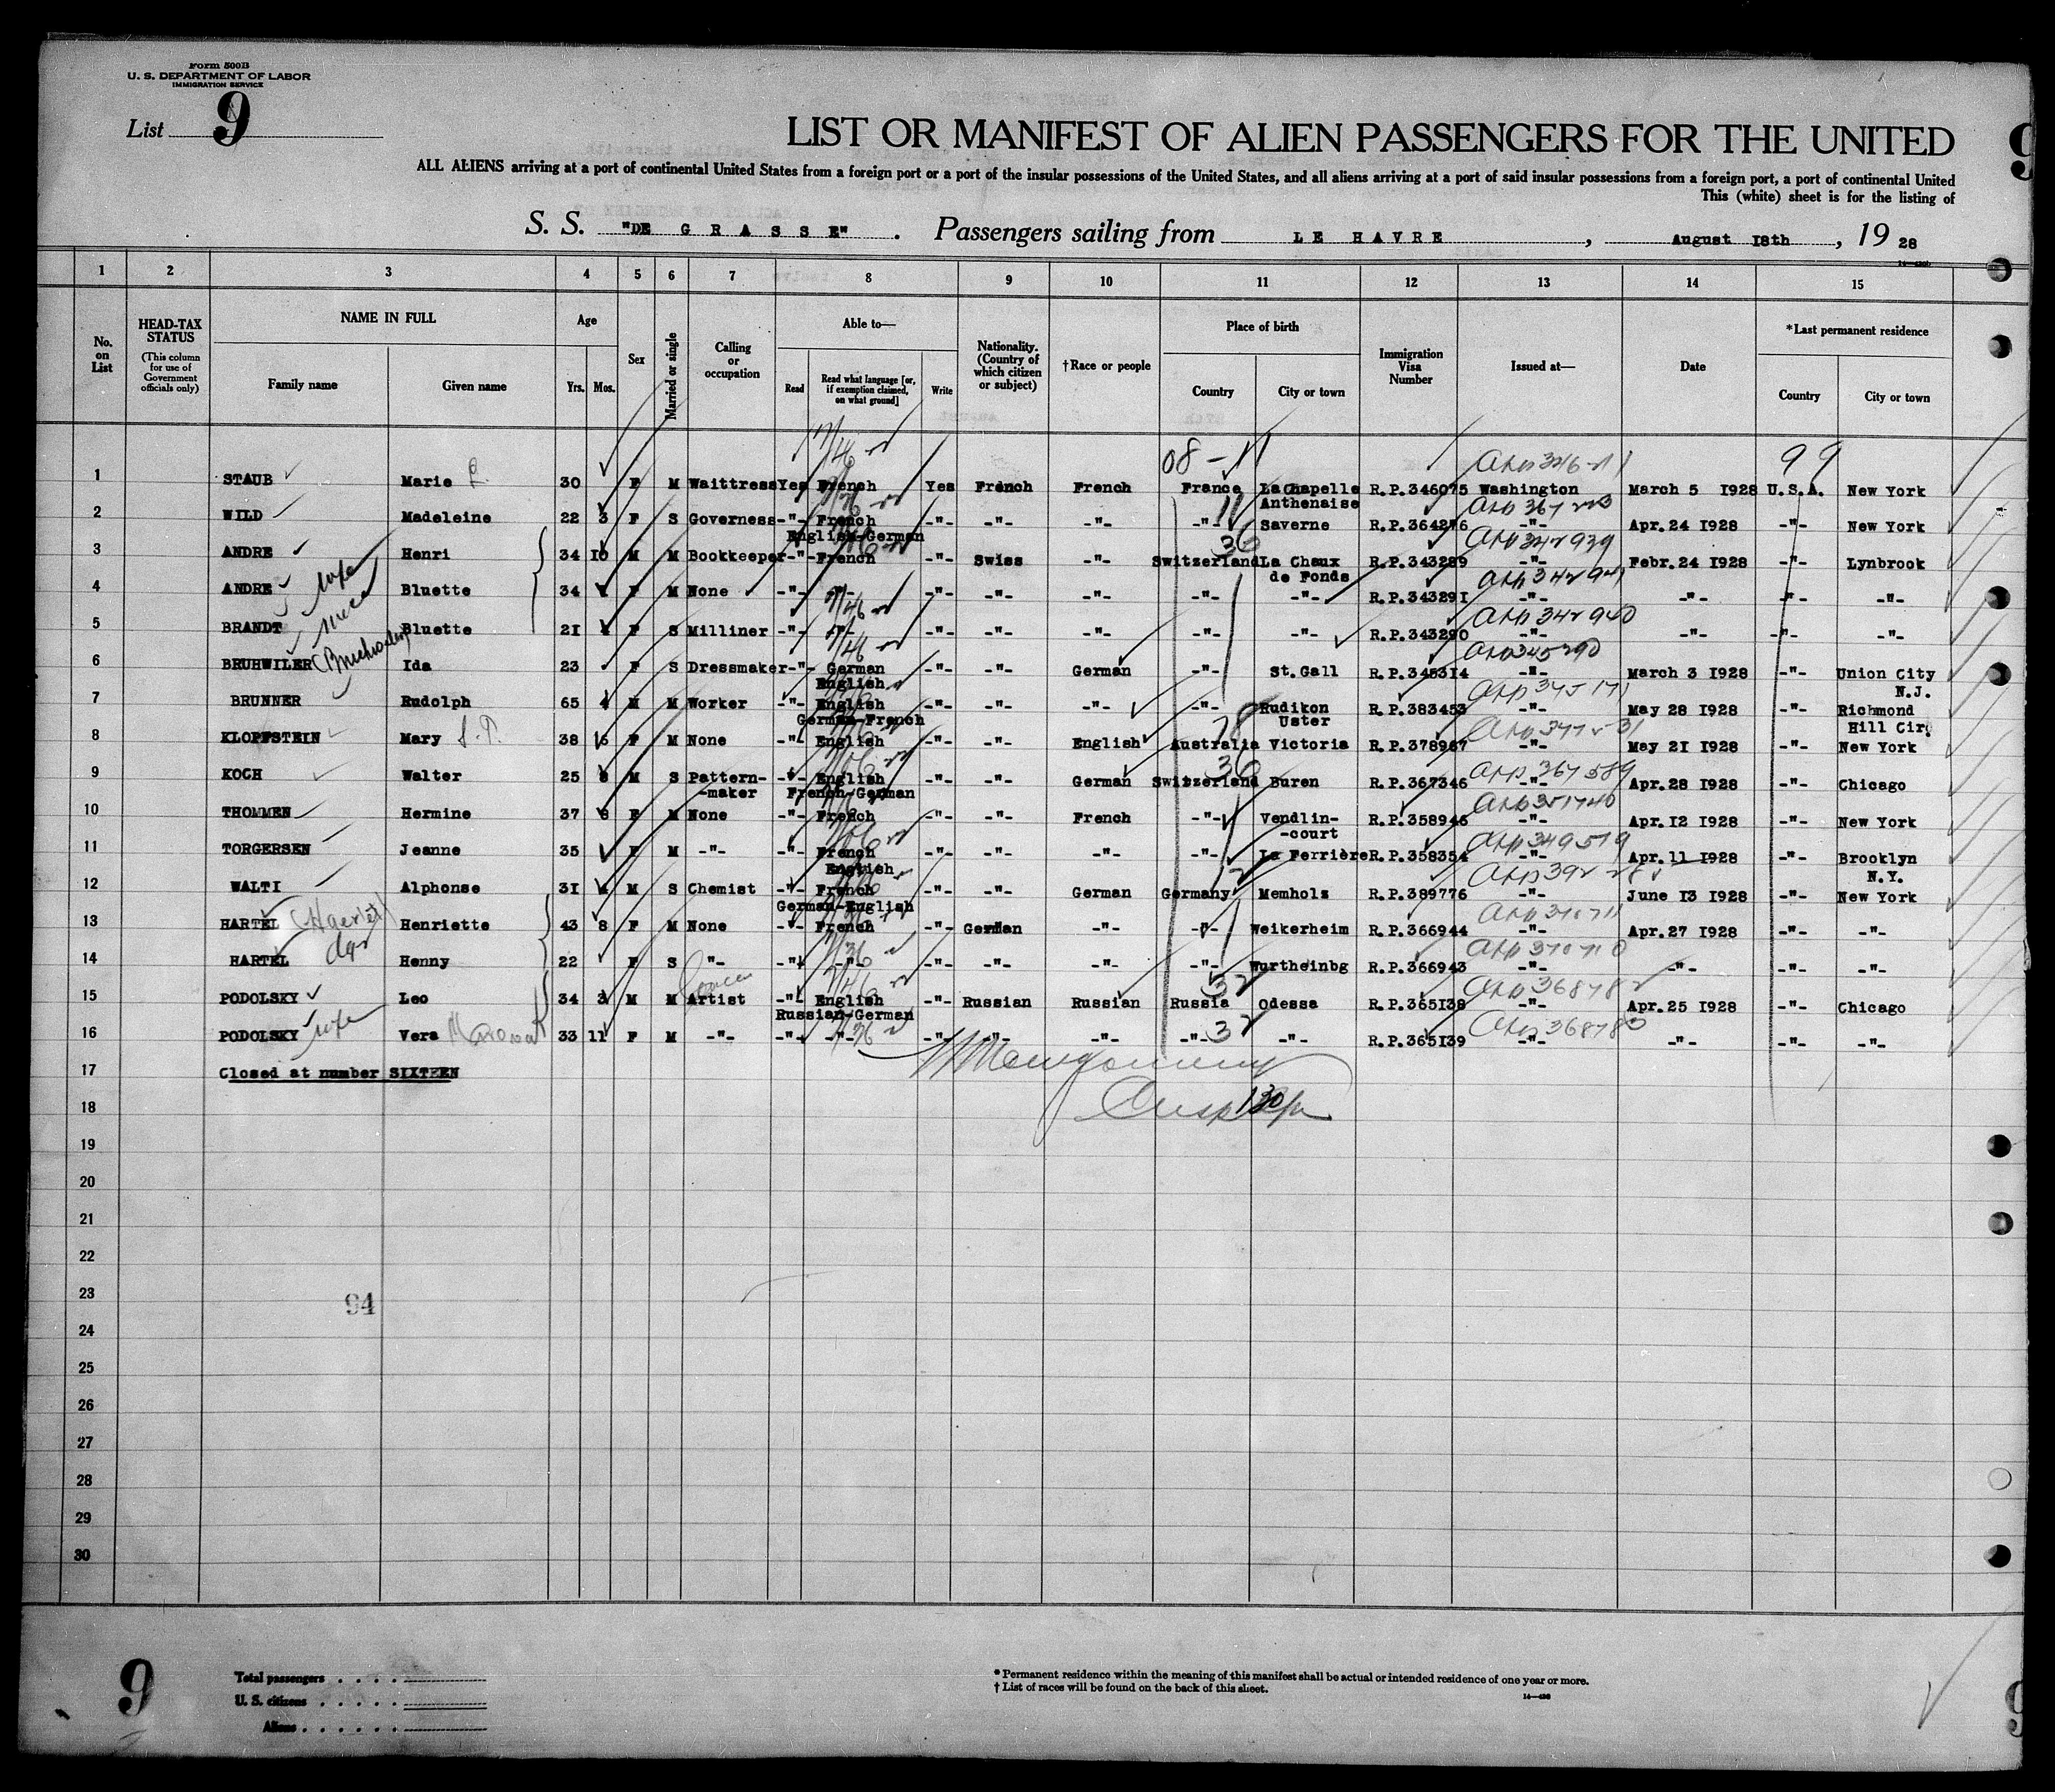 Form 500B
U. S. DEPARTMENT OF LABOR
IMMIGRATION SERVICE
List 9
LIST OR MANIFEST OF ALIEN PASSENGERS FOR THE UNITED
ALL ALIENS arriving at a port of continental United States from a foreign port or a port of the insular possessions of the United States, and all aliens arriving at a port of said insular possessions from a foreign port, a port of continental United
This (white) sheet is for the listing of
S. S. "DE GRASSE". Passengers sailing from LE HAVRE, August 18th, 19 28
1 2 3 4 5 6 7 8 9 10 11 12 13 14 15
No. on List
HEAD-TAX STATUS (This column for use of Government officials only)
NAME IN FULL Family name Given name
Age Yrs. Mos.
Sex
Married or single
Calling or occupation
Able to— Read Read what language [or, if exemption claimed, on what ground] Write
Nationality. (Country of which citizen or subject)
†Race or people
Place of birth Country City or town
Immigration Visa Number
Issued at—
Date
*Last permanent residence Country City or town
08 - 11 99
1 STAUB Marie 30 F M Waittress Yes French Yes French French France La Chapelle Anthenaise R.P.346075 Washington March 5 1928 U.S.A. New York
2 WILD Madeleine 22 3 F S Governess -"- French English-German -"- -"- -"- -"- Saverne R.P.364276 -"- Apr.24 1928 -"- New York
3 ANDRE Henri 34 10 M M Bookkeeper -"- French -"- Swiss -"- Switzerland La Chaux de Fonds R.P.343289 -"- Febr.24 1928 -"- Lynbrook
4 ANDRE wife Bluette 34 F M None -"- -"- -"- -"- -"- -"- -"- R.P.343291 -"- -"- -"- -"-
5 BRANDT niece Bluette 21 F S Milliner -"- -"- -"- -"- -"- -"- -"- R.P.343290 -"- -"- -"- -"-
6 BRUHWILER Ida 23 F S Dressmaker -"- German English -"- -"- German -"- St.Gall R.P.345314 -"- March 3 1928 -"- Union City N.J.
7 BRUNNER Rudolph 65 4 M M Worker -"- English German-French -"- -"- -"- -"- Rudikon Uster R.P.383453 -"- May 28 1928 -"- Richmond Hill Cir.
8 KLOPFSTEIN Mary 38 F M None -"- English -"- -"- English Australia Victoria R.P.378967 -"- May 21 1928 -"- New York
9 KOCH Walter 25 8 M S Pattern-maker -"- English French-German -"- -"- German Switzerland Buren R.P.367346 -"- Apr.28 1928 -"- Chicago
10 THOMMEN Hermine 37 8 F M None -"- French -"- -"- French -"- Vendlin-court R.P.358946 -"- Apr.12 1928 -"- New York
11 TORGERSEN Jeanne 35 F M -"- -"- French English -"- -"- -"- -"- La Ferrière R.P.358354 -"- Apr.11 1928 -"- Brooklyn N.Y.
12 WALTI Alphonse 31 4 M S Chemist -"- French German-English -"- -"- German Germany Memholz R.P.389776 -"- June 13 1928 -"- New York
13 HARTEL Henriette 43 8 F M None -"- French -"- German -"- -"- Weikerheim R.P.366944 -"- Apr.27 1928 -"- -"-
14 HARTEL Henny 22 F S -"- -"- -"- -"- -"- -"- -"- Wurtheinbg R.P.366943 -"- -"- -"- -"-
15 PODOLSKY Leo 34 3 M M Artist -"- English Russian-German -"- Russian Russian Russia Odessa R.P.365138 -"- Apr.25 1928 -"- Chicago
16 PODOLSKY wife Vera 33 11 F M -"- -"- -"- -"- -"- -"- -"- -"- R.P.365139 -"- -"- -"- -"-
17 Closed at number SIXTEEN
18
19
20
21
22
23
94
24
25
26
27
28
29
30
9
Total passengers
U. S. citizens
Aliens
* Permanent residence within the meaning of this manifest shall be actual or intended residence of one year or more.
† List of races will be found on the back of this sheet.